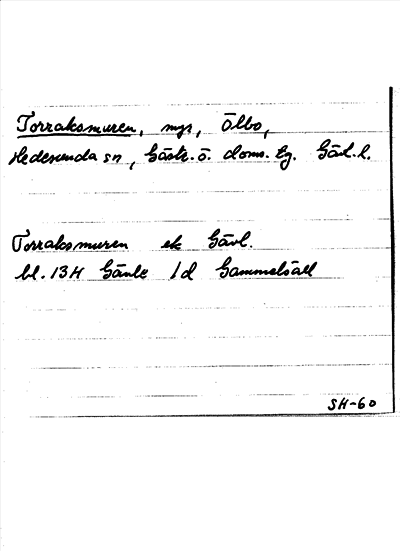 Torraksmuren, myr, Ölbo,
Hedesunda sn, Gästr. ö. doms. tg. Gävl. l.
Torraksmuren ek Gävl.
bl. 13H Gävle 1d Gammelsäll
SH-60